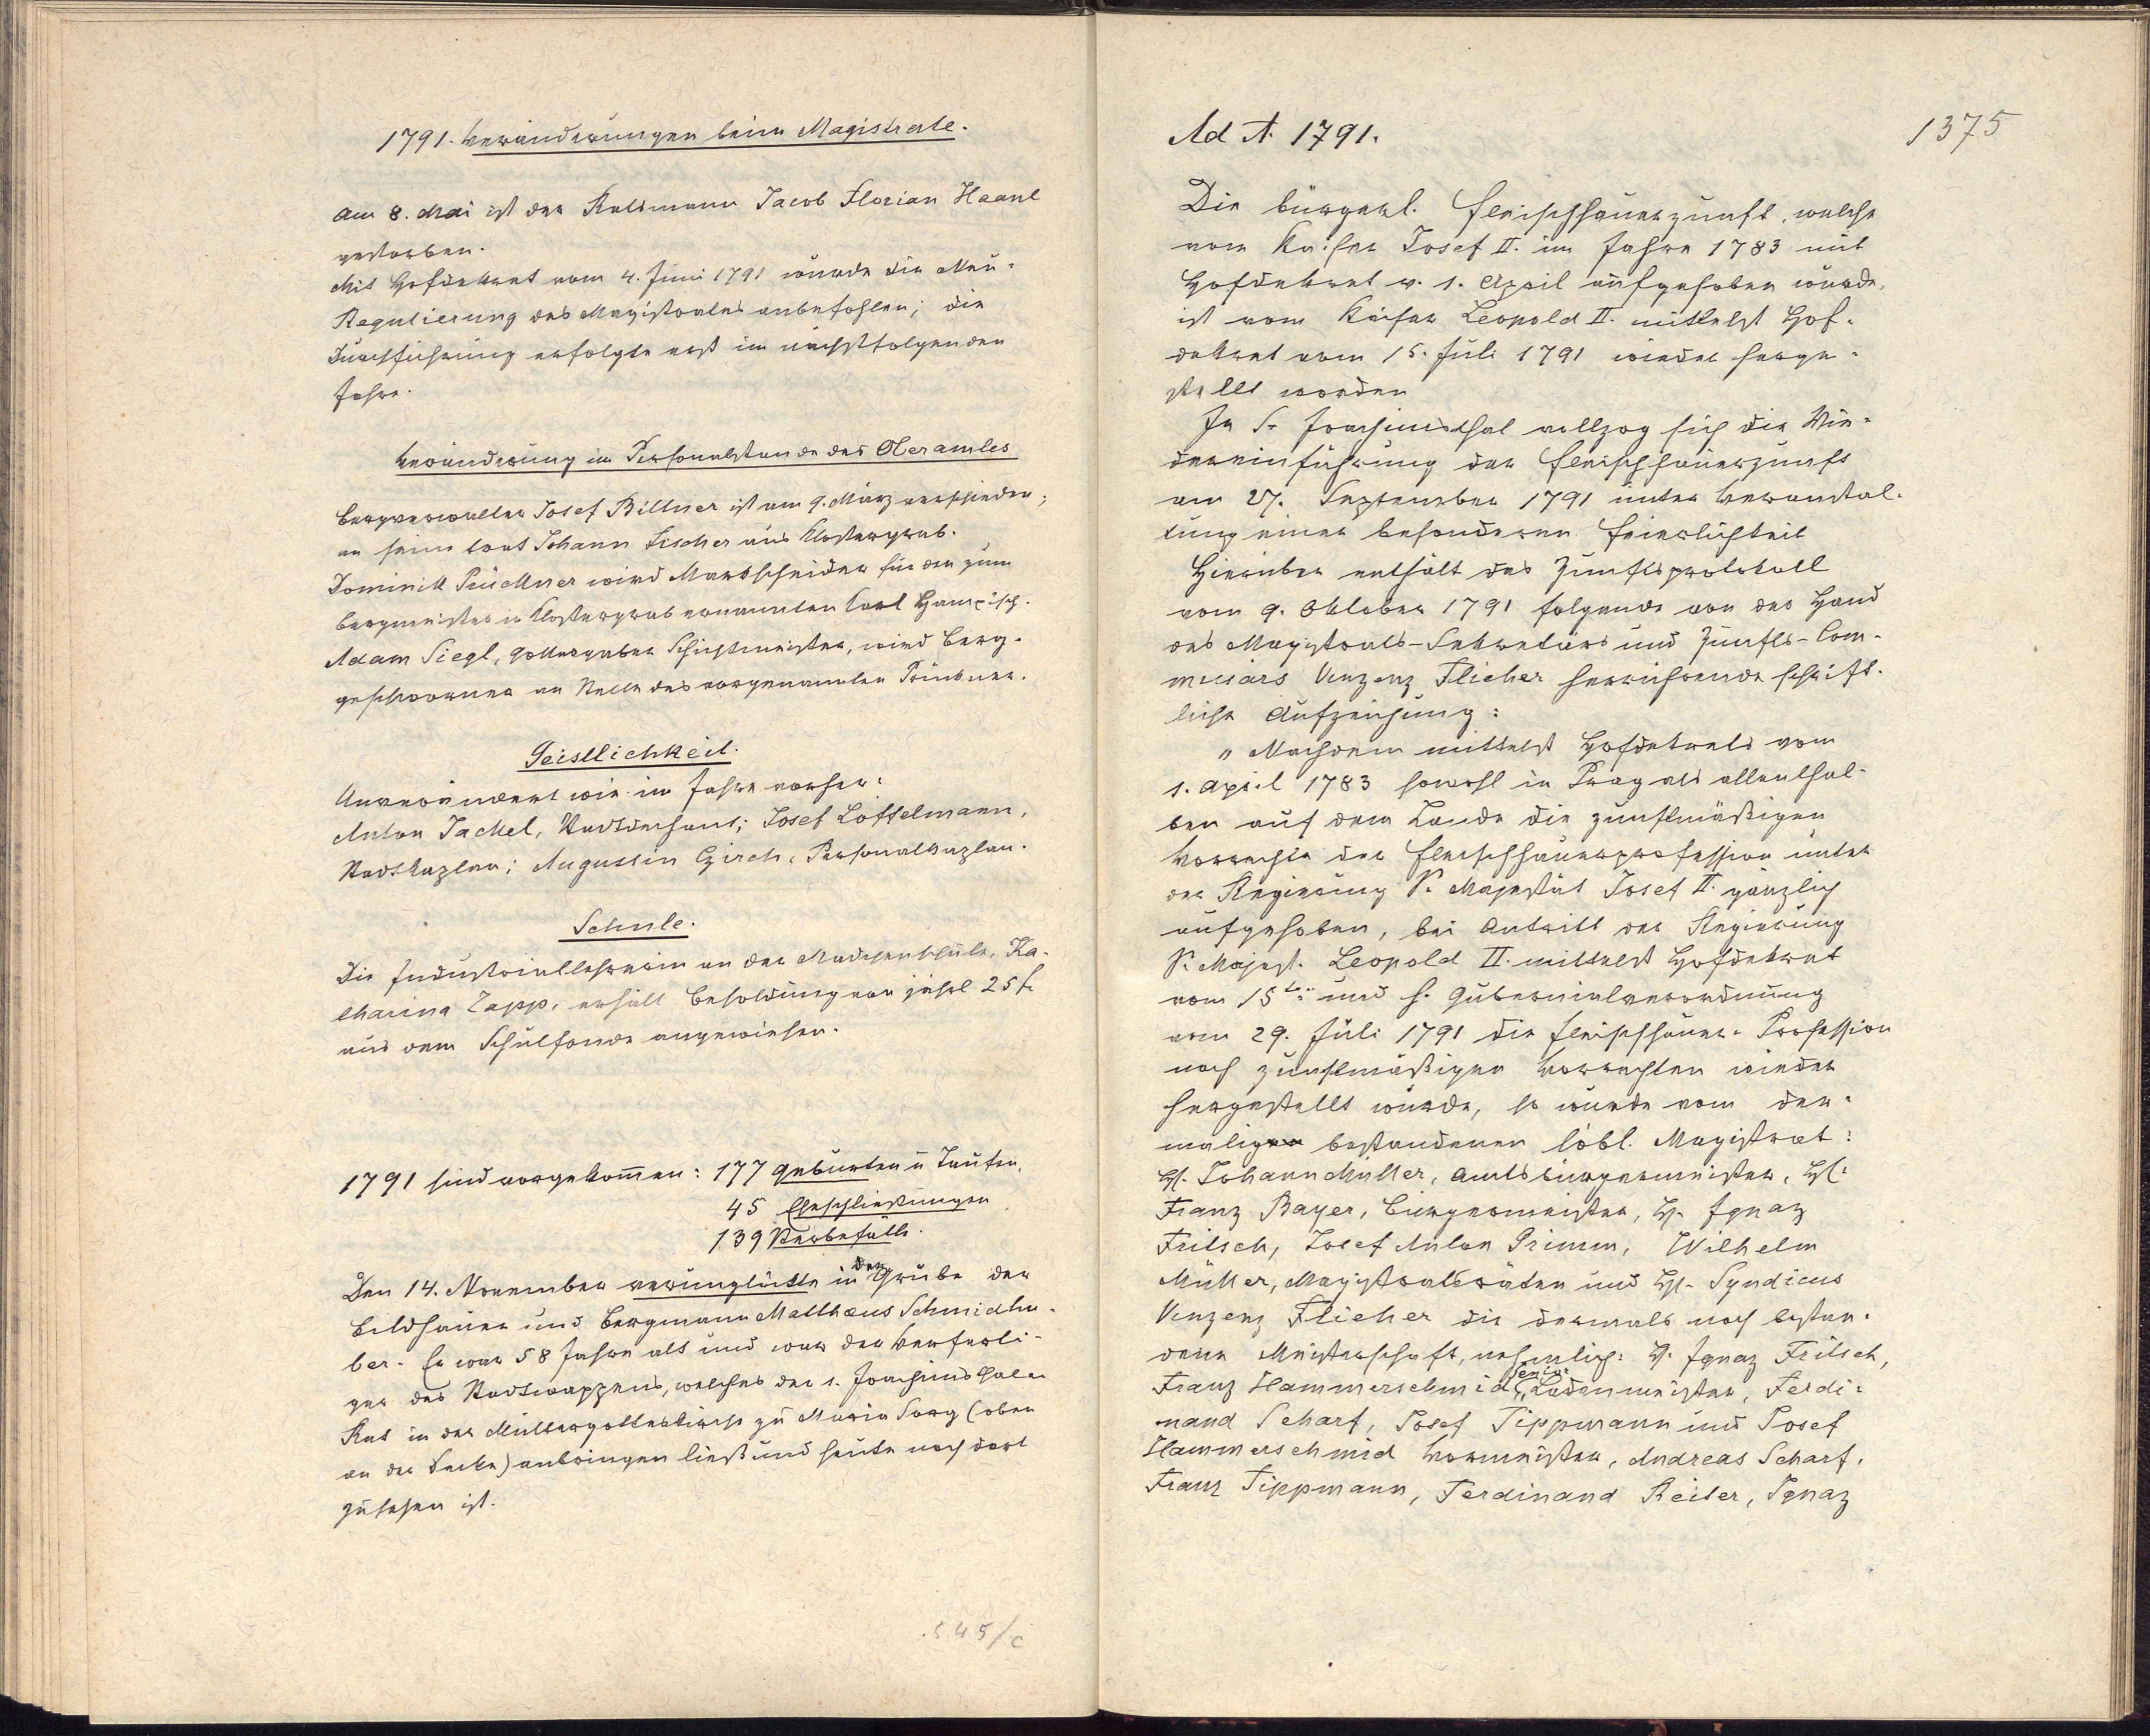 1791. Veränderungen beim Magistrate.
Am 8. Mai ist der Ratsmann Jacob Florian Haanl
gestorben.
Mit Hofdekret vom 4. Juni 1791 wurde die Neu-
Regulierung des Magistrates anbefohlen; die
Durchführung erfolgte erst im nächstfolgenden
Jahre.
Veränderung im Personalstande des Oberamtes
Bergverwalter Josef Bittner ist am 9. März verschieden;
an seine trat Johann Fischer aus Klostergrab.
Dominik Prückner wird Markscheider für den zum
Bergmeister in Klostergrab ernannten Karl Hampisch.
Adam Siegl, Gottesgaber Schichtmeister, wird Berg-
geschworner an Stelle des vorgenannten Prückner.
Geistlichkeit.
Unverändert wie im Jahre vorher:
Anton Jackel, Stadtdechant; Josef Löffelmann,
Stadtkaplan; Augustin Czirch, Personalkaplan.
Schule.
Die Industriallehrerin an der Mädchenschule, Ka-
tharina Zapp, erhält Besoldung von jährl 25 f.
aus dem Schulfonde angewiesen.
1791 sind vorgekommen: 177 Geburten u Taufen,
45 Eheschließungen
139 Sterbefälle.
Den 14. November verunglückte in der Grube der
Bildhauer und Bergmann Matthæus Schmidhu-
ber. Er war 58 Jahre alt und war der Verferti-
ger des Stadtwappens, welches der s. Joachimsthaler
Rat in der Muttergotteskirche zu Maria Sorg (oben
an der Decke) anbringen ließ und heute noch dort
zu sehen ist.
545/c
1375
Ad A. 1791.
Die bürgerl. Fleischhauerzunft, welche
vom Kaiser Josef II. im Jahre 1783 mit
Hofdekret v. 1. April aufgehoben wurde,
ist vom Kaiser Leopold II. mittelst Hof-
dekret vom 15. Juli 1791 wieder herge-
stellt worden
In S. Joachimsthal vollzog sich die Wie-
dereinführung der Fleischhauerzunft
am 27. September 1791 unter Veranstal-
tung einer besonderen Feierlichkeit
Hierüber enthält das Zunftsprotokoll
vom 9. Oktober 1791 folgende von der Hand
des Magistrats-Sekretärs und Zunfts-Com-
missärs Vinzenz Flieher herrührende schrift-
liche Aufzeichnung:
„Nachdem mittelst Hofdekrets vom
1. April 1783 sowohl in Prag als allenthal-
ben auf dem Lande die zunftmäßigen
Vorrechte der Fleischhauerprofession unter
der Regierung Sr. Majestät Josef II. gänzlich
aufgehoben, bei Antritt der Regierung
Sr. Majest. Leopold II. mittelst Hofdekret
vom 15ten und h. Gubernialverordnung
vom 29. Juli 1791 die Fleischhauer-Profession
nach zunftmäßigen Vorrechten wieder
hergestellt wurde, so wurde vom der-
malig bestandenen löbl. Magistrat:
H. Johann Müller, Amtsbürgermeister, H.
Franz Bayer, Bürgermeister, H. Ignaz
Fritsch, Josef Anton Grimm, Wilhelm
Müller, Magistratsräten und H. Syndicus
Vinzenz Flieher die dermals noch bestan-
dene Meisterschaft, nehmlich: H. Ignaz Fritsch,
Franz Hammerschmid, Senior Ladenmeister, Ferdi-
nand Scharf, Josef Tippmann und Josef
Hammerschmid Vormeister, Andreas Scharf,
Franz Tippmann, Ferdinand Reiter, Ignaz